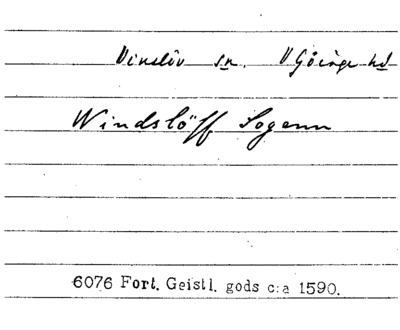 Vinslöv sn. V Göinge hd
Windslöff Sogenn
6076 Fort. Geistl. gods c:a 1590.